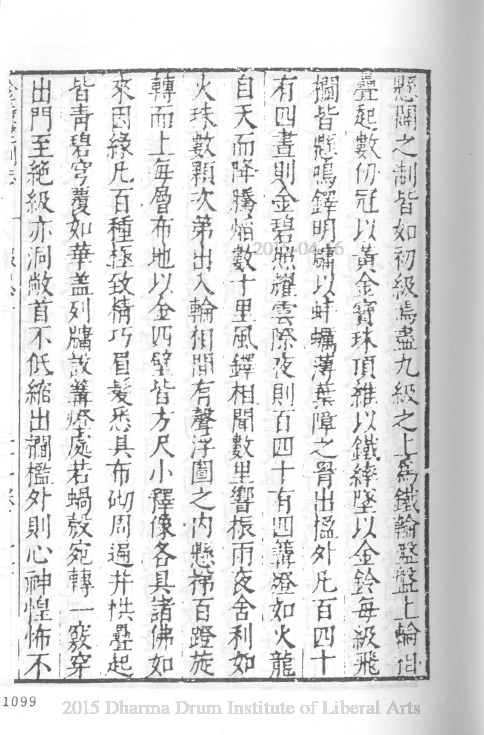 懸闊之制皆如初級焉盡九級之上為鐵輪盤盤上輪相
疊起數仞冠以黃金寶珠頂維以鐵縴墜以金鈴每級飛
欄皆懸鳴鐸明牖以蚌蠣薄葉障之骨出楹外凡百四十
有四晝則金碧照耀雲際夜則百四十有四篝燈如火龍
自天而降騰焰數十里風鐸相聞數里響振雨夜舍利如
火珠數顆次第出入輪相間有聲浮圖之內懸梯百蹬旋
轉而上每層布地以金四壁皆方尺小釋像各具諸佛如
來因緣凡百種極致精巧眉髮悉具布砌周遍井栱疊起
皆青碧穹覆如華蓋列牖設篝燈處若蝸殼宛轉一竅穿
出門至絕級亦洞敞首不低縮出襉檻外則心神惶怖不
2015-04-16
1099
2015 Dharma Drum Institute of Liberal Arts